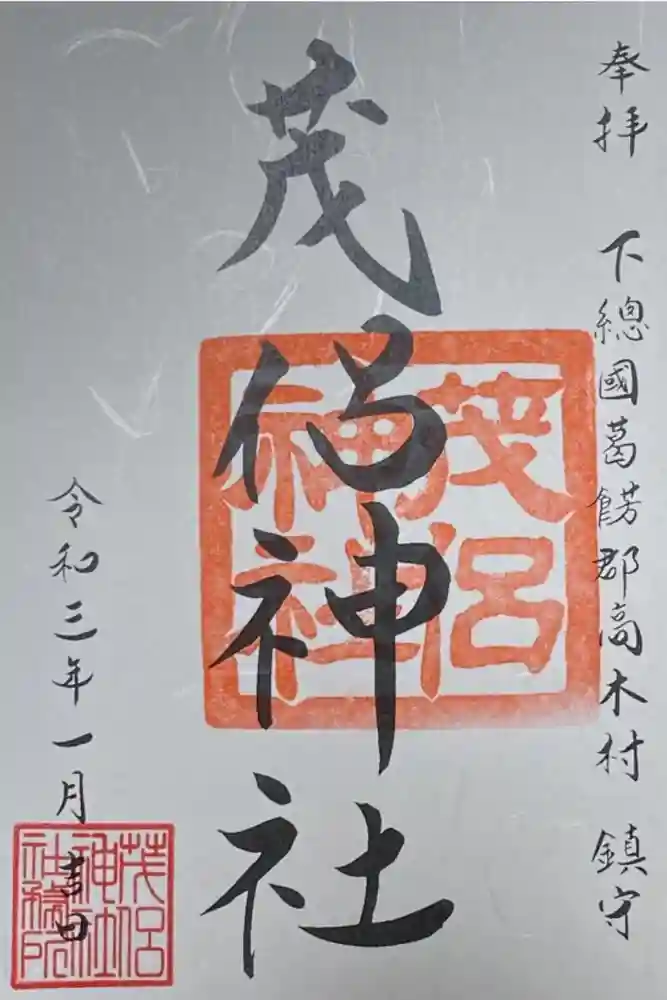 奉拝 下總國葛餝郡高木村 鎮守
茂侶神社
茂侶
神社
令和三年一月吉日
茂侶
神社
社務所